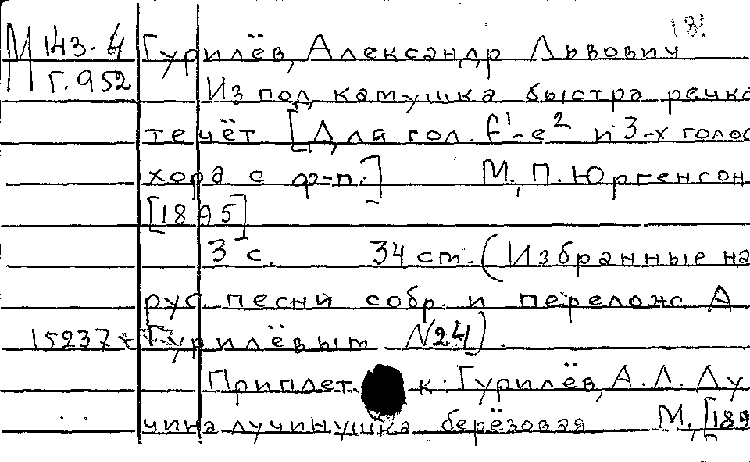 М 143-4 Гурилёв, Александр Львович
Г.952 Из под камушка быстра речка
течёт [Для гол. f¹-e² и 3-х голос
хора с ф-п.] М., П. Юргенсон
[1895]
3 с. 34 cm. (Избранные на
рус песни собр и перелож А
15237 Гурилёвым N24).
Приплет. к: Гурилёв, А.Л. Лу
чина лучинушка берёзовая М, [189